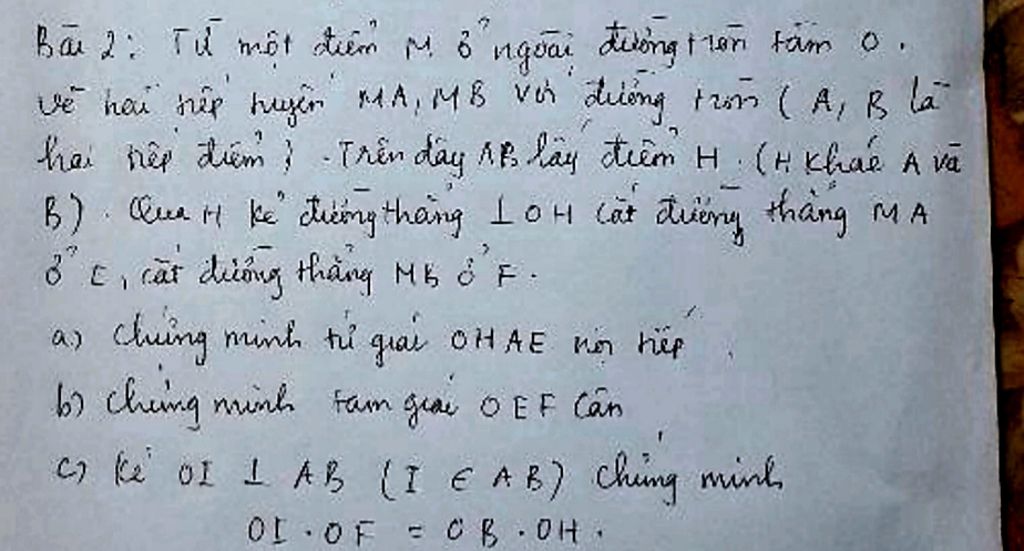 Bài 2: Từ một điểm M ở ngoài đường tròn tâm O.
vẽ hai tiếp tuyến MA, MB với đường tròn (A, B là
hai tiếp điểm). Trên dây AB lấy điểm H. (H khác A và
B). Qua H kẻ đường thẳng ⊥ OH cắt đường thẳng MA
ở E, cắt đường thẳng MB ở F.
a) Chứng minh tứ giác OHAE nội tiếp.
b) Chứng minh tam giác OEF Cân
c) Kẻ OI ⊥ AB (I ∈ AB) Chứng minh
OI . OF = OB . OH.